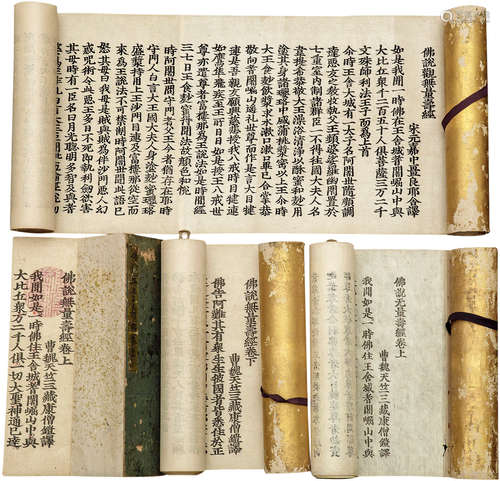 佛說觀無量壽經
宋元嘉中畺良耶舍譯
如是我聞一時佛在王舍城耆闍崛山中與
大比丘眾千二百五十人俱菩薩三萬二千
文殊師利法王子而為上首
爾時王舍大城有一太子名阿闍世隨順調
達惡友之教收執父王頻婆娑羅幽閉置於
七重室內制諸群臣一不得往國大夫人名
韋提希恭敬大王澡浴清淨以酥蜜和麨用
塗其身諸瓔珞中盛蒲桃漿密以上王爾時
大王食麨飲漿求水漱口漱口畢已合掌恭
敬向耆闍崛山遙禮世尊而作是言大目犍
連是吾親友願興慈悲授我八戒時目犍連
如鷹隼飛疾至王所日日如是授王八戒世
尊亦遣尊者富樓那為王說法如是時間經
三七日王食麨蜜得聞法故顏色和悅
時阿闍世問守門者父王今者猶存在耶時
守門人白言大王國大夫人身塗麨蜜瓔珞
盛漿持用上王沙門目連及富樓那從空而
來為王說法不可禁制時阿闍世聞此語已
怒其母曰我母是賊與賊為伴沙門惡人幻
惑呪術令此惡王多日不死即執利劍欲害
其母時有一臣名曰月光聰明多智及與耆
佛說無量壽經卷上
曹魏天竺三藏康僧鎧譯
我聞如是一時佛住王舍城耆闍崛山中與
大比丘眾萬二千人俱一切大聖神通已達
佛說無量壽經卷下
曹魏天竺三藏康僧鎧譯
佛告阿難其有眾生生彼國者皆悉住於正
佛說无量壽經卷上
曹魏天竺三藏康僧鎧譯
我聞如是一時佛住王舍城耆闍崛山中與